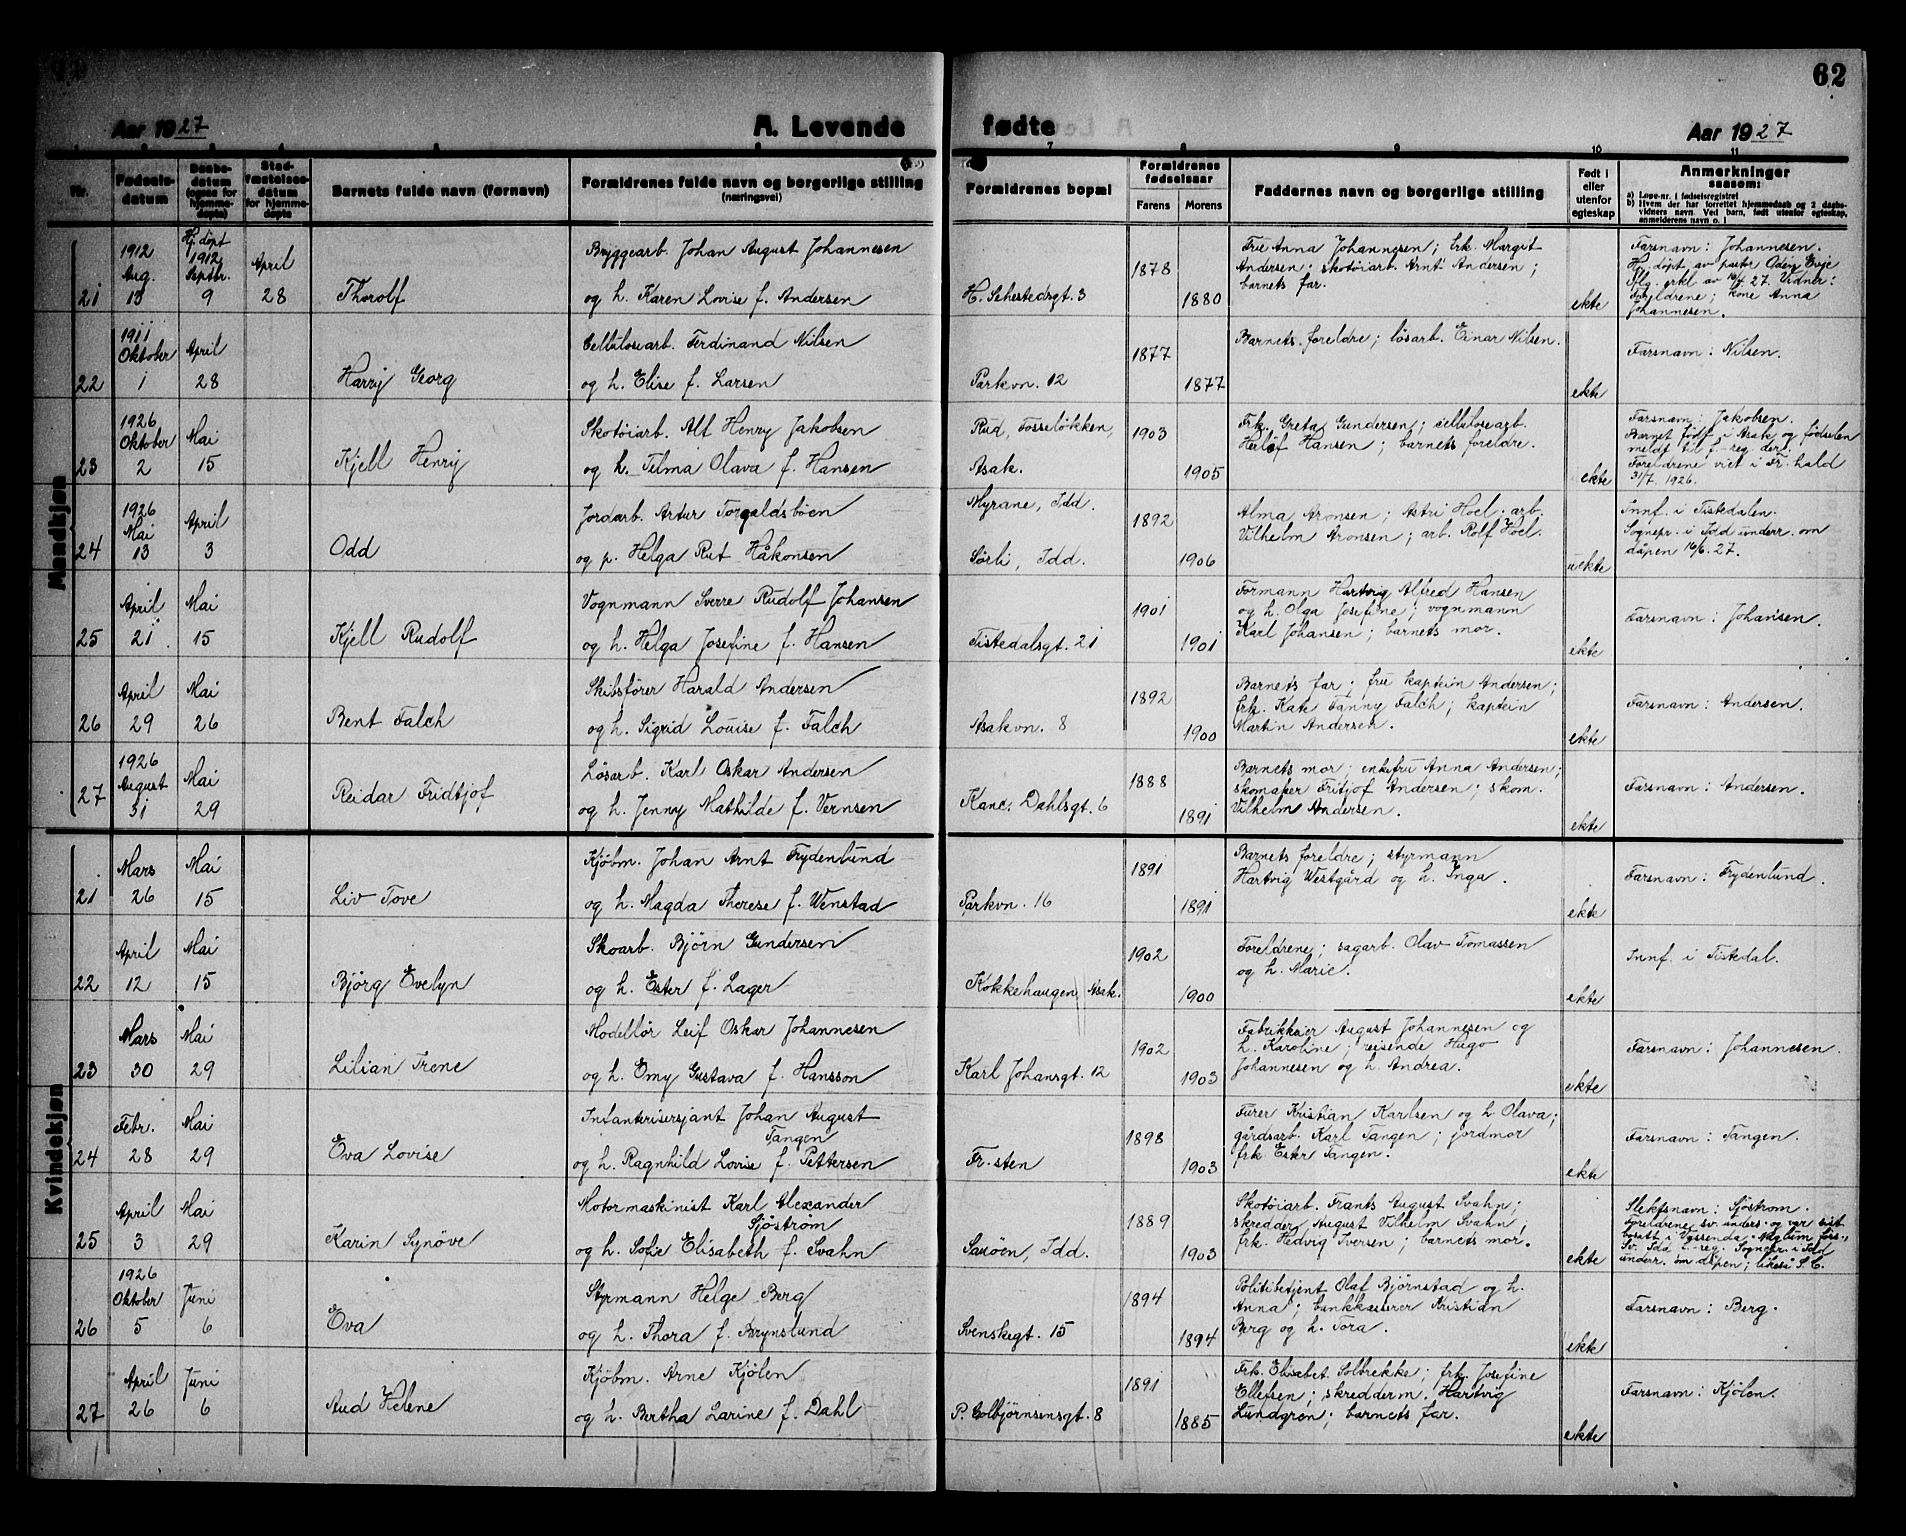 62
Aar 1927
A. Levende
fødte
Aar 1927
Nr.
Fødsels-
datum
Daabs-
datum
(ogsaa for
hjemme-
døpte)
Stad-
fæstelses-
datum
for hjemme-
døpte
Barnets fulde navn (fornavn)
Forældrenes fulde navn og borgerlige stilling
(næringsvei)
7
8
9
10
11
Forældrenes bopæl
Forældrenes
fødselsaar
Farens
Morens
Faddernes navn og borgerlige stilling
Født i
eller
utenfor
egteskap
Anmerkninger
saasom:
a) Løpe-nr. i fødselsregistret
b) Hvem der har forrettet hjemmedaab og 2 daabs-
vidners navn. Ved barn, født utenfor egteskap,
anmelderens navn o. l
Mandkjøn
21
1912
Aug.
13
Hj.døpt
1912
Septbr.
9
April
28
Thorolf
Bryggearb. Johan August Johannesen
og h. Karen Lovise f. Andersen
H. Sehestedsgt. 3
1878
1880
Frue Anna Johannesen; frk. Margit
Andersen; skotøiarb. Arnt Andersen;
barnets far.
ekte
Farsnavn: Johannesen.
Hj.døpt av pastor Odén Evje
iflg. erkl av 16/4 27. Vidner:
Foreldrene; kone Anna
Johannesen.
22
1911
Oktober
1
April
28
Harry Georg
Celluloseearb. Ferdinand Nilsen
og h. Elise f. Larsen
Parkvn. 12
1877
1877
Barnets foreldre; løsarb. Einar Nilsen.
ekte
Farsnavn: Nilsen.
23
1926
Oktober
2
Mai
15
Kjell Henry
Skotøiarb. Alf Henry Jakobsen
og h. Telma Olava f. Hansen
Rud, Fosseløkken,
Asak.
1903
1905
Frk. Greta Gundersen; cellulosearb.
Herlof Hansen; barnets foreldre.
ekte
Farsnavn: Jakobsen.
Barnet født i Asak og fødselen
meldt til f-reg der.
Foreldrene viet i Fr.hald
31/7. 1926.
24
1926
Mai
13
April
3
Odd
Jordarb. Artur Torgaldsbøen
og p. Helga Rut Håkonsen
Myrane, Idd.
Sørli, Idd.
1892
1906
Alma Aronsen; Astri Hoel; arb.
Vilhelm Aronsen; arb. Rolf Hoel.
uekte
Innf. i Tistedalen.
Sognepr. i Idd underr. om
dåpen 16/6. 27.
25
April
21
Mai
15
Kjell Rudolf
Vognmann Sverre Rudolf Johansen
og h. Helga Josefine f. Hansen
Tistedalsgt. 21
1901
1901
Formann Hartvig Alfred Hansen
og h. Olga Josefine; vognmann
Karl Johansen; barnets mor.
ekte
Farsnavn: Johansen.
26
April
29
Mai
26
Bent Falch
Skibsfører Harald Andersen
og h. Sigrid Louise f. Falch
Asakvn. 8
1892
1900
Barnets far; frue kaptein Andersen;
frk. Kate Fanny Falch; kaptein
Martin Andersen.
ekte
Farsnavn: Andersen.
27
1926
August
31
Mai
29
Reidar Fridtjof
Løsarb. Karl Oskar Andersen
og h. Jenny Mathilde f. Vernsen
Kanc. Dahlsgt. 6
1888
1891
Barnets mor; enkefru Anna Andersen;
skomaker Fritjof Andersen; skom.
Vilhelm Andersen.
ekte
Farsnavn: Andersen.
Kvindekjøn
21
Mars
26
Mai
15
Liv Tove
Kjøbm. Johan Arnt Frydenlund
og h. Magda Therese f. Wenstad
Parkvn. 16
1891
1891
Barnets foreldre; styrmann
Hartvig Westgård og h. Inga.
ekte
Farsnavn: Frydenlund.
22
April
12
Mai
15
Bjørg Evelyn
Skoarb. Bjørn Gundersen
og h. Ester f. Lager
Kokkehaugen, Asak.
1902
1900
Foreldrene; sagarb. Olav Tomassen
og h. Marie.
ekte
Innf. i Tistedal.
23
Mars
30
Mai
29
Lilian Irene
Modellør Leif Oskar Johannesen
og h. Emy Gustava f. Hansson
Karl Johansgt. 12
1902
1903
Fabrikkeier August Johannesen og
h. Karoline; reisende Hugo
Johannesen og h. Andrea.
ekte
Farsnavn: Johannesen.
24
Febr.
28
Mai
29
Eva Lovise
Infanterisersjant Johan August
Tangen
og h. Ragnhild Lovise f. Pettersen
Fr.sten
1898
1903
Furer Kristian Karlsen og h. Olava;
gårdsarb. Karl Tangen; jordmor
frk Ester Tangen.
ekte
Farsnavn: Tangen.
25
April
3
Mai
29
Karin Synøve
Motormaskinist Karl Alexander
Sjöström
og h. Sofie Elisabeth f. Svahn
Sauøen, Idd.
1889
1903
Skotøiarb. Frants August Svahn;
skredder August Vilhelm Svahn;
frk. Hedvig Iversen; barnets mor.
ekte
Slektsnavn: Sjöström.
Foreldrene sv. unders. og var sist
bosatt i
underr. om dåpen; likeså S. C.
26
1926
Oktober
5
Juni
6
Eva
Styrmann Helge Berg
og h. Thora f. Brynslund
Svenskegt. 15
1894
1894
Politibetjent Olaf Bjørnstad og h.
Anna; bankkasserer Kristian
Berg og h. Tora.
ekte
Farsnavn: Berg.
27
April
26
Juni
6
Aud Helene
Kjøbm. Arne Kjölen
og h. Bertha Larine f. Dahl
P. Colbjørnsensgt. 8
1891
1885
Frk. Elisabet Solbrekke; frk. Josefine
Ellefsen; skredderm. Hartvig
Lundgren; barnets far.
ekte
Farsnavn: Kjölen.